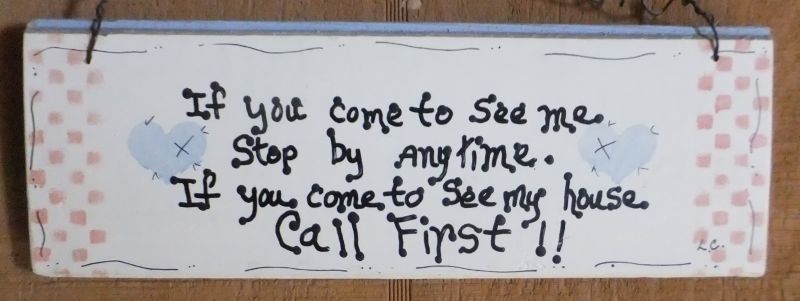 If you come to see me.
Stop by anytime.
If you come to see my house.
Call First !!
L.C.